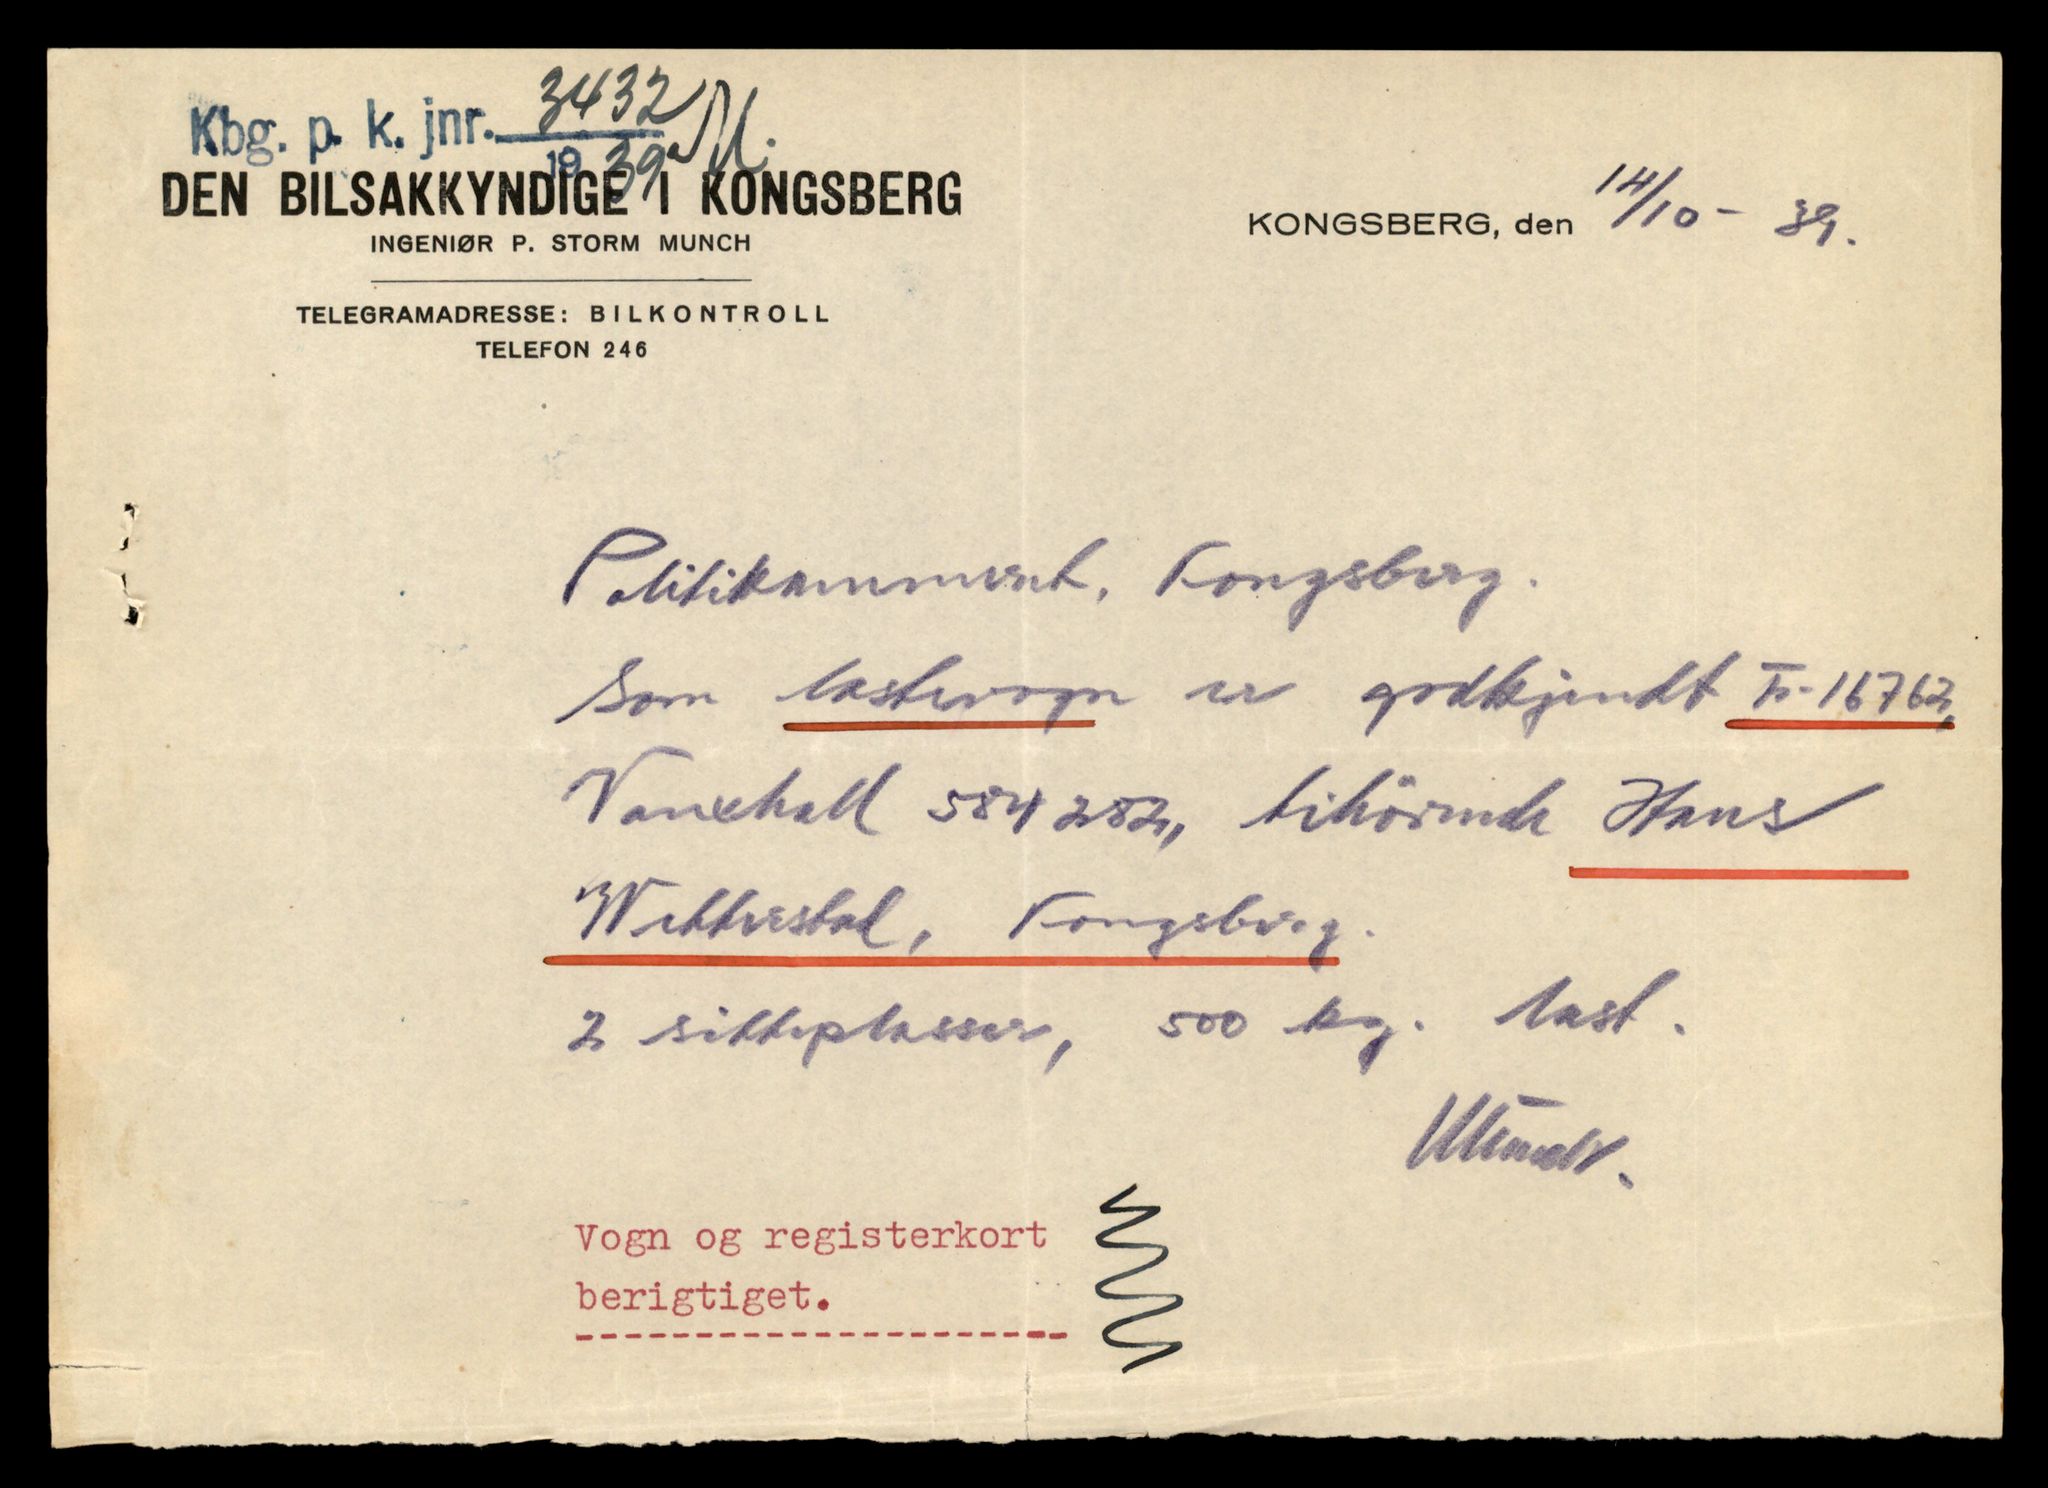 Kbg. p. k. jnr. 3432
1939 M.
DEN BILSAKKYNDIGE I KONGSBERG
INGENIØR P. STORM MUNCH
TELEGRAMADRESSE: BILKONTROLL
TELEFON 246
KONGSBERG, den 14/10 - 39.
Politikammeret, Kongsberg.
Som lastevogn er godkjendt F-16762,
Vauxhall 584282, tihörende Hans
Wettrestad, Kongsberg.
2 sitteplasser, 500 kg. last.
Vogn og registerkort
berigtiget.